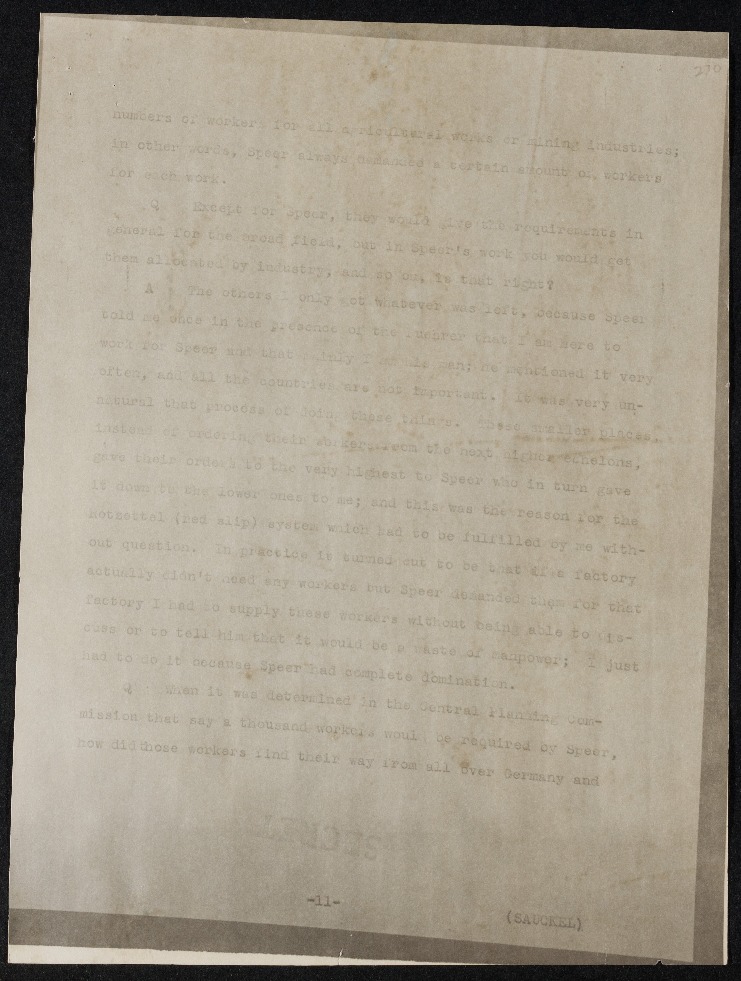 270
numbers of worker for all agricultural works or mining industries;
in other words, Speer always demanded a certain amount of workers
for each work.
Q Except for Speer, they would give the requirements in
general for the broad field, but in Speer's work you would get
them allocated by industry, and so on, is that right?
A The others I only got whatever was left, because Speer
told me once in the presence of the Fuehrer that I am here to
work for Speer and that mainly I am his man; he mentioned it very
often, and all the countries are not important. It was very un-
natural that process of doing these things. These smaller places,
instead of ordering their workers from the next higher echelons,
gave their orders to the very highest to Speer who in turn gave
it down to the lower ones to me; and this was the reason for the
Rotzettel (red slip) system which had to be fulfilled by me with-
out question. In practice it turned out to be that if a factory
actually didn't need any workers but Speer demanded them for that
factory I had to supply these workers without being able to dis-
cuss or to tell him that it would be a waste of manpower; I just
had to do it because Speer had complete domination.
Q When it was determined in the Central Planning Com-
mission that say a thousand workers would be required by Speer,
how did those workers find their way from all over Germany and
SECRET
-11-
(SAUCKEL)